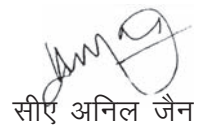 सीए अनिल जैन